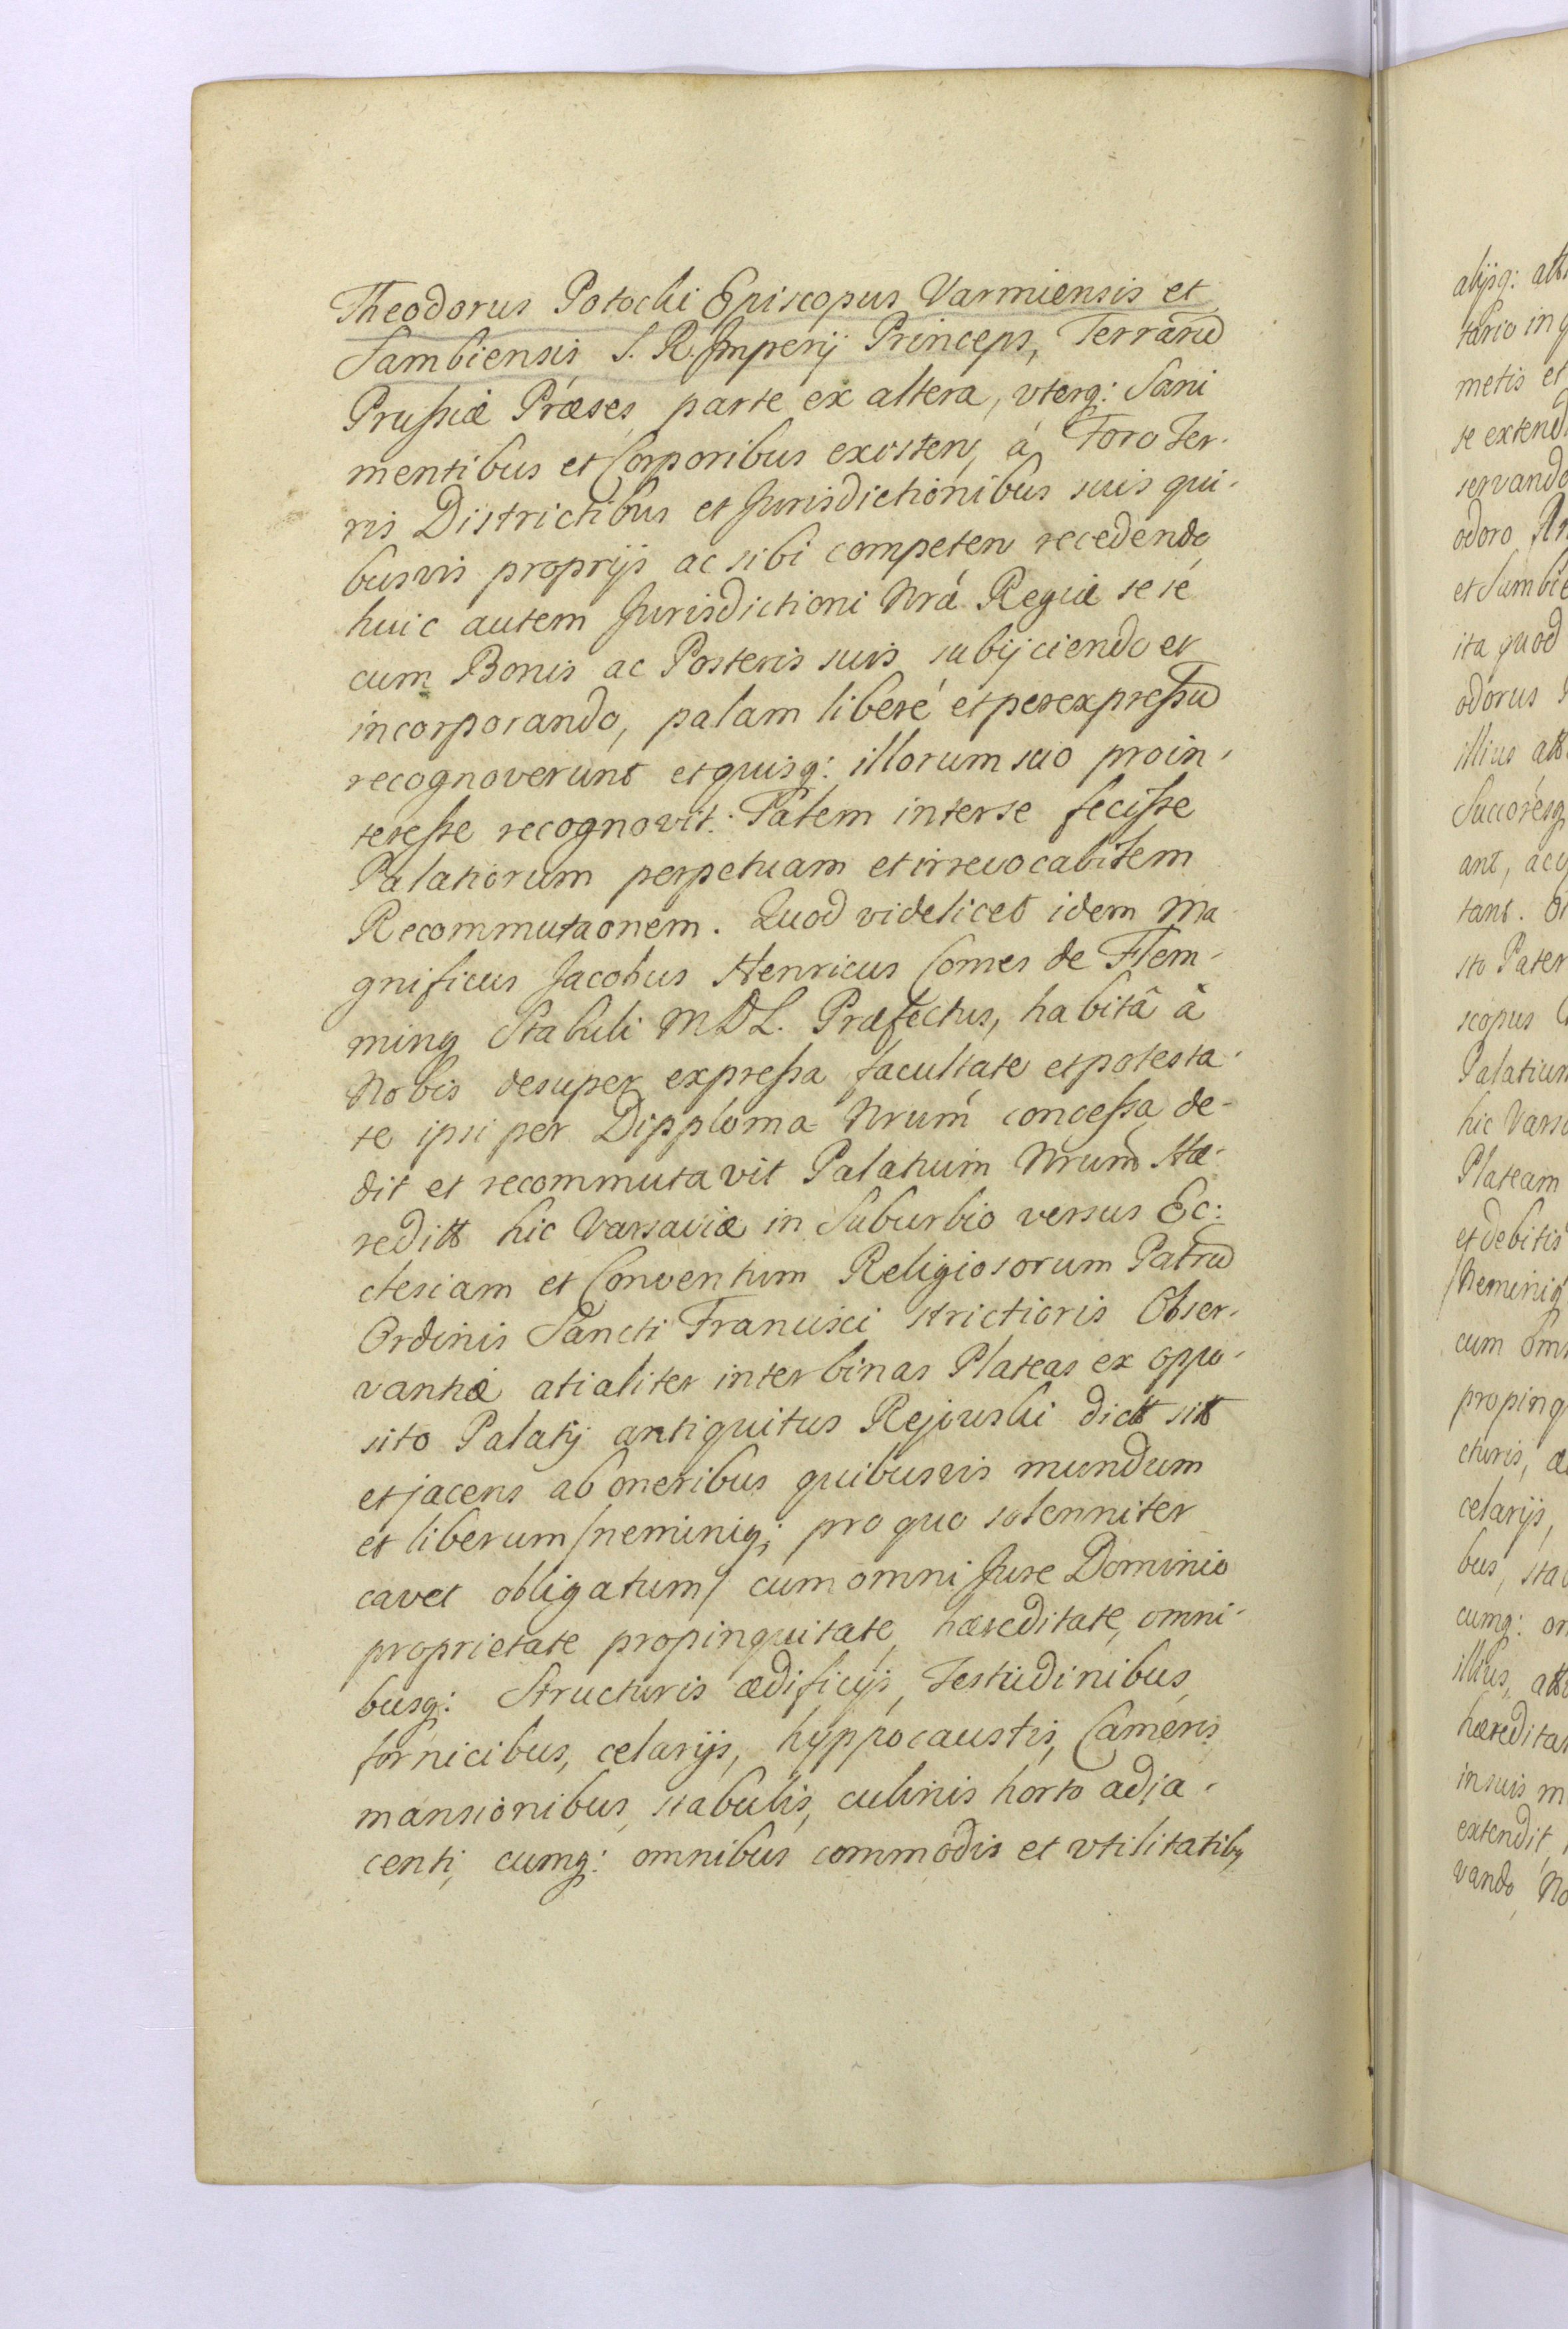 Theodorus Potocki Episcopus Varmiensis et
Sambiensis S. R. Imperij Princeps, Terrarũ
Prußiæ Præses parte ex altera, vterq: Sani
mentibus et Corporibus existen, á Foro Ter-
ris Districtibus et Jurisdictionibus suis qui-
busvis proprijs ac sibi competen recedendo
huic autem Jurisdictioni Nrá Regiæ se se
cum Bonis ac Posteris suis subijciendo et
incorporando, palam liberé et per expreßũ
recognoverunt et quisq: illorum suo proin-
tereße recognovit: Talem inter se feciße
Palatiorum perpetuam et irrevocabilem
Recommutaonem. Quod videlicet idem Ma-
gnificus Jacobus Henricus Comes de Flem-
ming Stabuli MDL. Præfectus, habitâ â
Nobis desuper expreßa facultate et potesta-
te ipsi per Dipploma Nrum conceßa de-
dit et recommutavit Palatium Nrum Hæ-
reditt hic Varsaviæ in Suburbio versus Ec:
clesiam et Conventum Religiosorum Patrũ
Ordinis Sancti Francisci strictioris Obser-
vantiæ atialiter inter binas Plateas ex oppo-
sito Palatij antiquitus Rejowski dictt sitt
et jacens ab oneribus quibusvis mundum
et liberum /neminiq; pro quo solenniter
cavet obligatum/ cum omni Jure Dominio
proprietate propinquitate, hæreditate, omni-
busq: Structuris ædificijs, Testudinibus
fornicibus, celarijs, hyppocaustis, Cameris
mansionibus, stabulis, culinis horto adja-
centi, cumq: omnibus commodis et vtilitatibq
alijsq: att
tario in q
metis et
se extend
servando
odoro An
et Sambie
ita quod
odorus
illius att
Succoresq
ant, acq
tant.
sto Pater
scopus
Palatium
hic Varsa
Plateam
et debitis
/Neminiq
cum omn
propinq
cturis, æ
celarijs,
bus, sta
cumq: om
illius, att
hæredita
in suis m
extendit,
vando, No